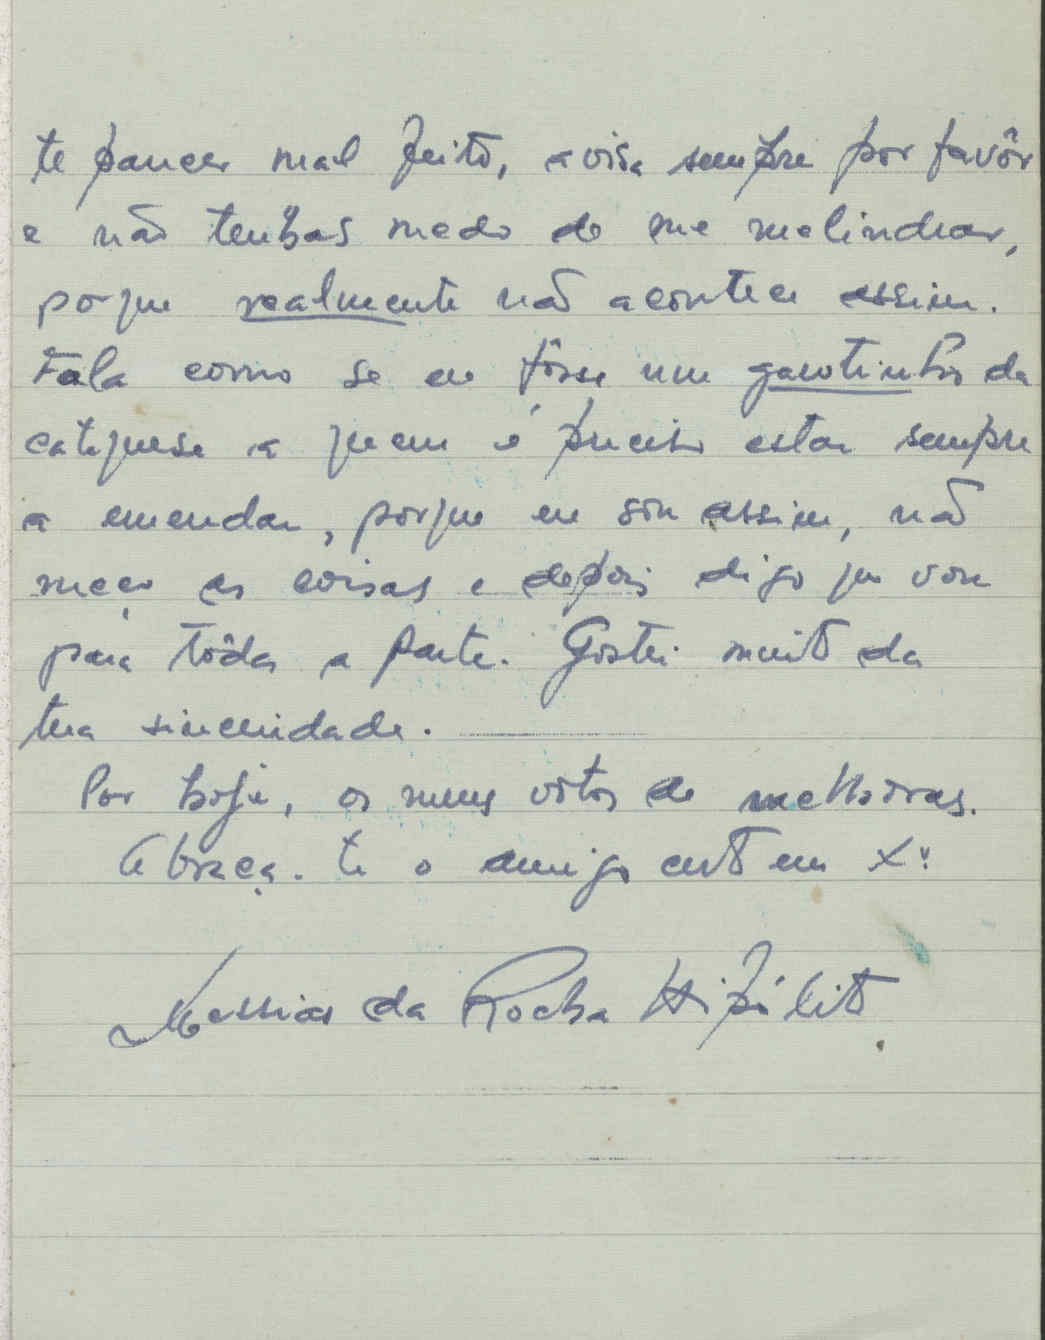 te parecer mal feito, avisa sempre por favôr
e não tenhas medo de me melindrar,
porque realmente não acontece assim.
Fala como se eu fôsse um garotinho da
catequese a quem é preciso estar sempre
a emendar, porque eu sou assim, não
meço as coisas e depois digo que vou
para tôda a parte. Gostei muito da
tua sinceridade.
Por hoje, os meus votos de melhoras.
Abraça-te o amigo certo em Xº
Messias da Rocha Hipólito